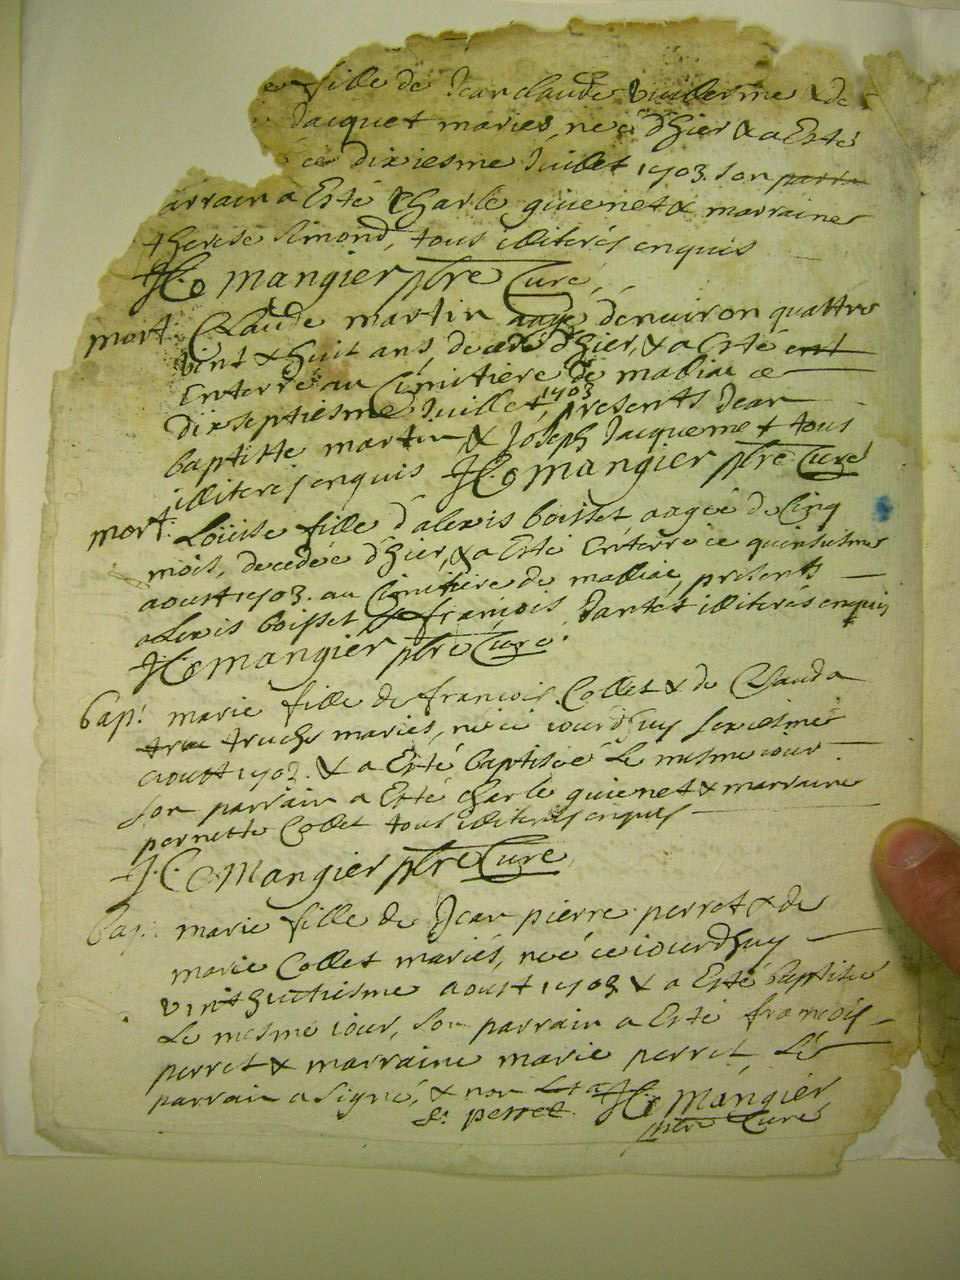 fille de Jean claude vuillerme & de
Jacquet mariés, neé d'hier & a Esté
ce dixiesme Juillet 1703. son parra
arrain a Esté Charle guienet & marraine
therese simond, tous illiterés enquis
mangier ptre Curé,
mort. Claude martin aagé denuiron quattre
vint & huit ans, decedé d'hier, & a Esté ent
Enterré au Cimitiere de
dixseptiesme Juillet 1703, presents Jean
baptiste martin & Joseph Jacquemet tous
illiterés enquis mangier ptre Curé
mort. Loüise fille d'alexis boisset aagée de Cinq
mois, decedée d'hier, & a Esté Enterré ce quinsiesme
aoust 1703. au Cimitiere de presents
alexis boisset & françois Jantet illiterés enquis
mangier ptre Curé.
bap: marie fille de françois Collet & de Clauda
truc truche mariés, neé ce iourd'huy sixiesme
aoust 1703. & a Esté baptisée Le mesme iour
son parrain a Esté charle guienet & marraine
pernette Collet tous illiterés enquis
mangier ptre Curé
bap: marie fille de Jean pierre perret & de
marie Collet mariés, neé ce iourd'huy
vinthuictiesme aoust 1703 & a Esté baptisée
Le mesme iour, son parrain a Esté françois
perret & marraine marie perret Lé
parrain a signé, & non La mangier
f: perret ptre Curé